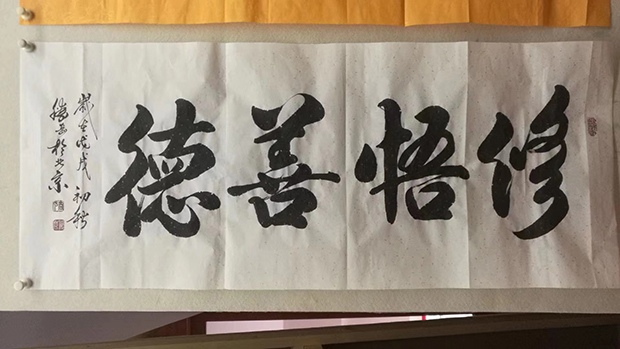 修悟善德
歲在戊戌初秋
於北京